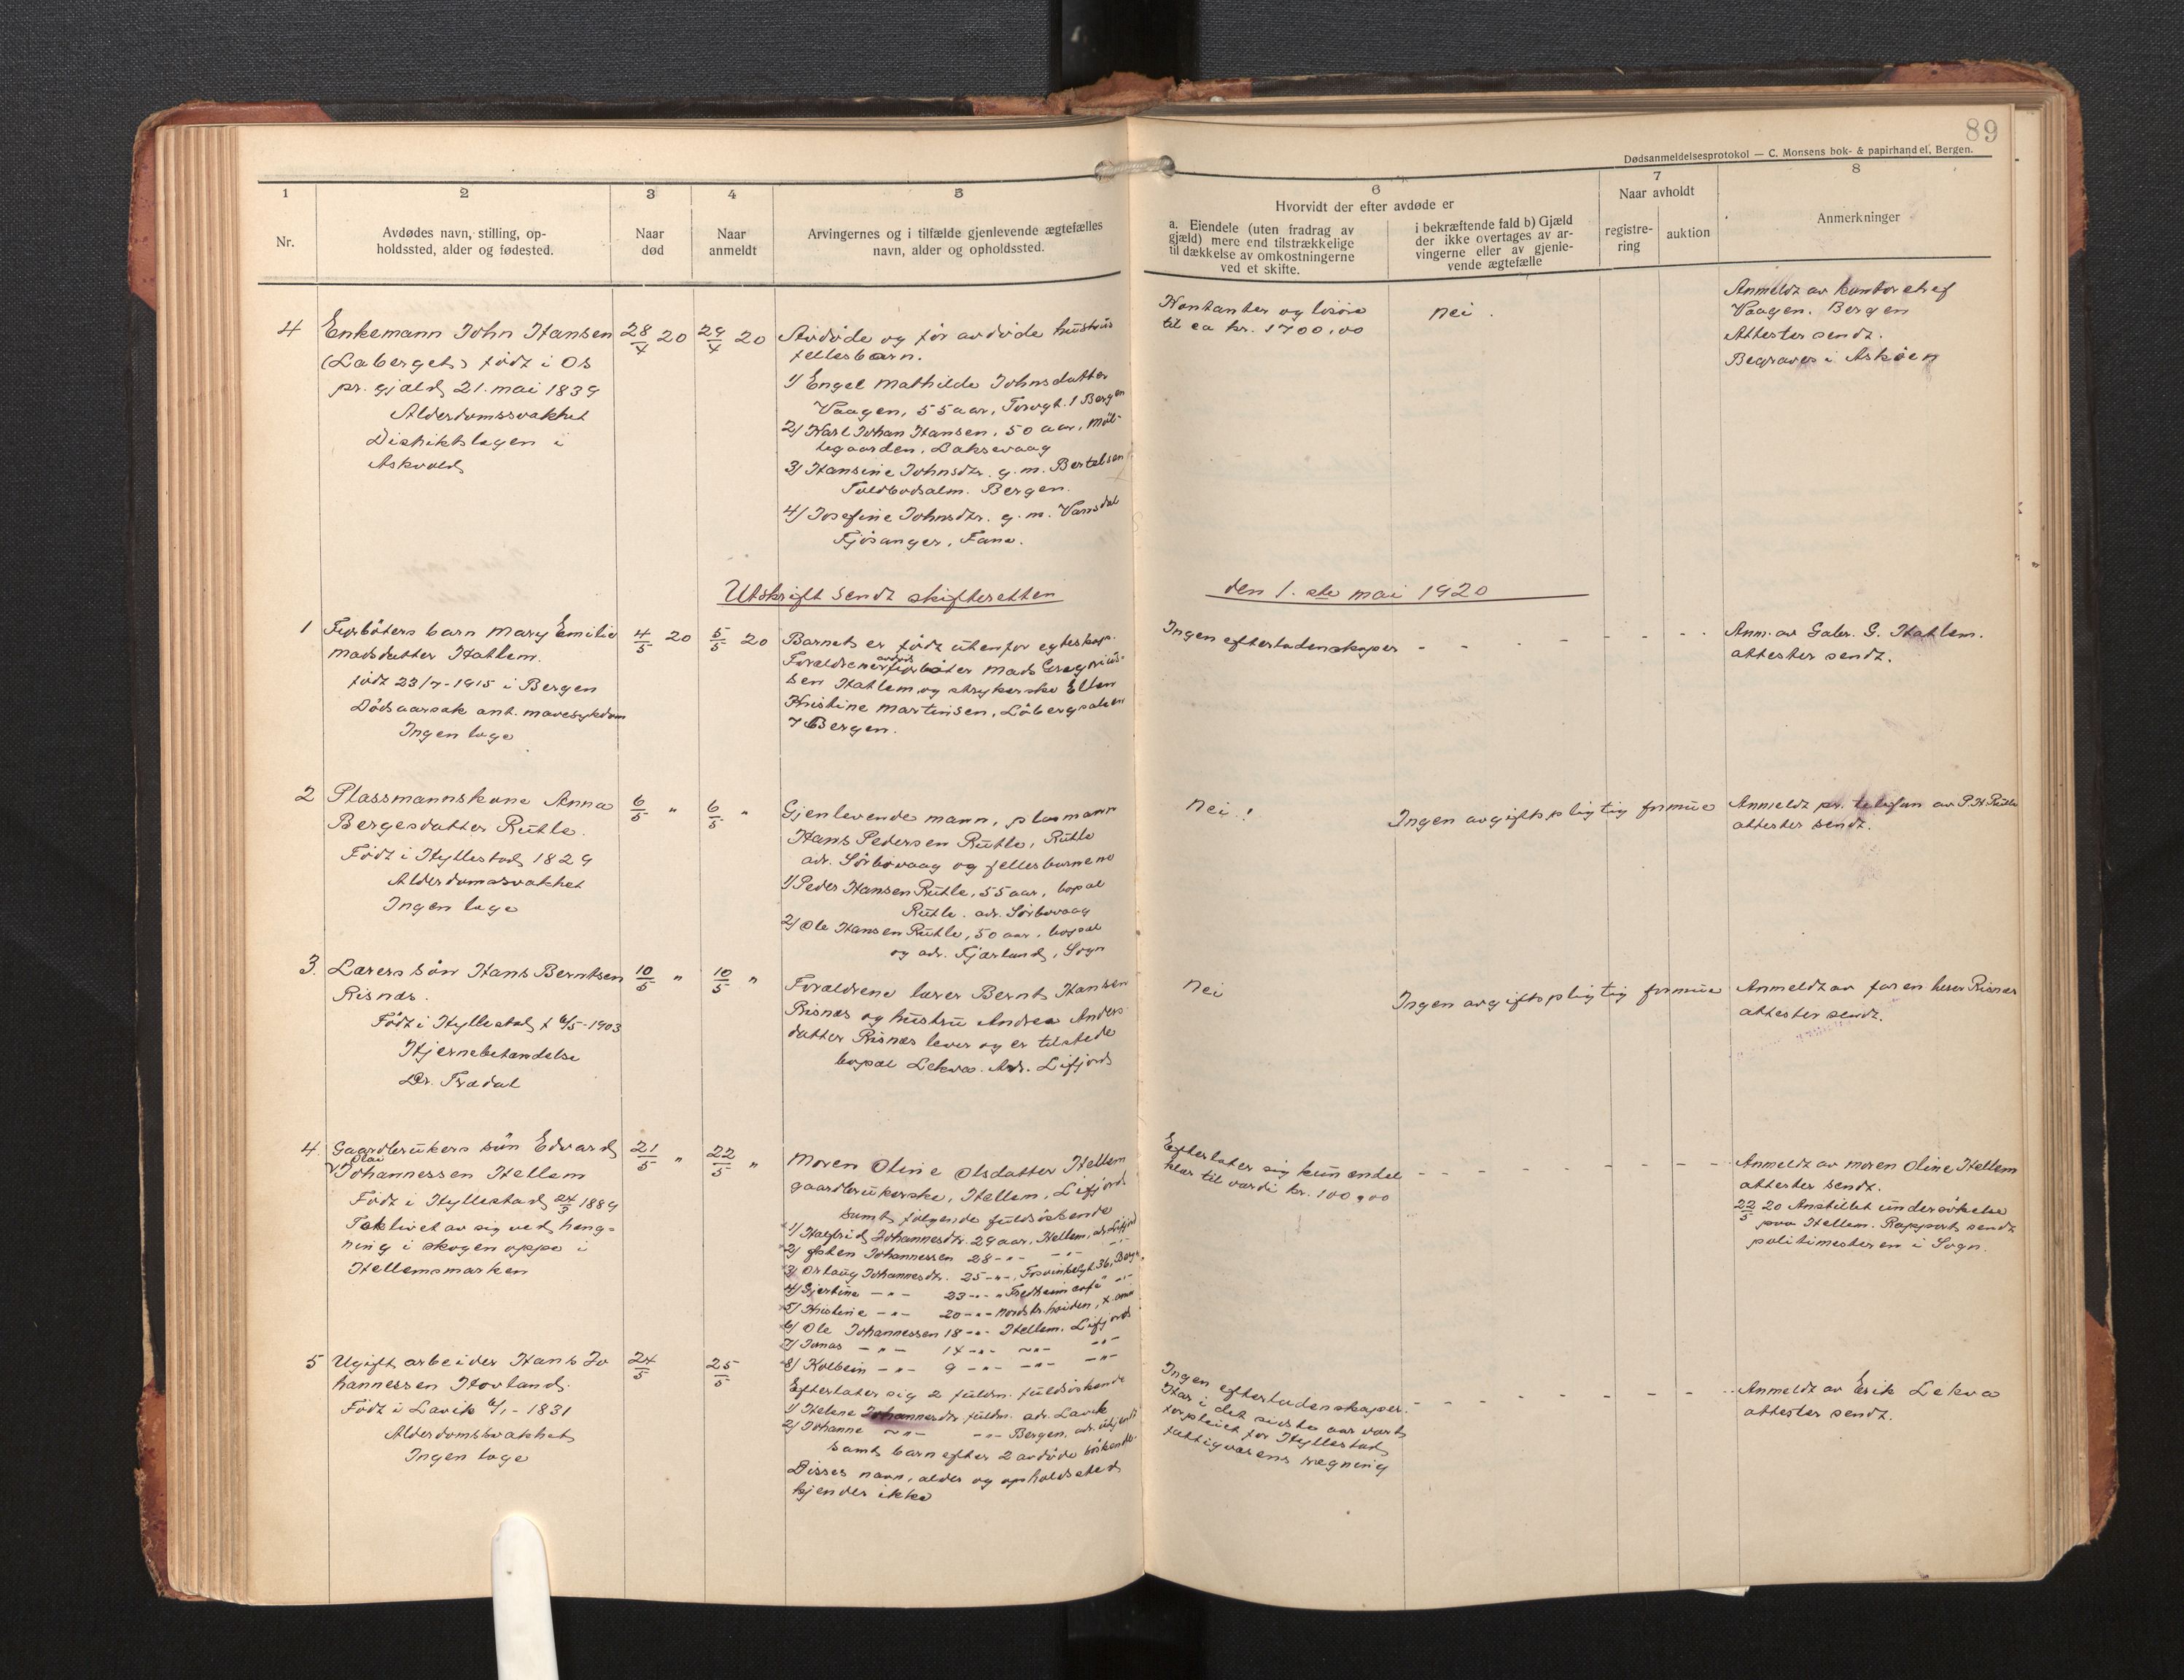 89
Dødsanmeldelsesprotokol — C. Monsens bok- & papirhandel, Bergen.
1
2
3
4
5
6
7
8
Nr.
Avdødes navn, stilling, op-
holdssted, alder og fødested.
Naar
død
Naar
anmeldt
Arvingernes og i tilfælde gjenlevende ægtefælles
navn, alder og opholdssted.
Hvorvidt der efter avdøde er
a. Eiendele (uten fradrag av
gjæld) mere end tilstrækkelige
til dækkelse av omkostningerne
ved et skifte.
i bekræftende fald b) Gjæld
der ikke overtages av ar-
vingerne eller av gjenle-
vende ægtefælle
Naar avholdt
registre-
ring
auktion
Anmerkninger
4
Enkemann John Hansen
(Laberget) født i Os
pr.gjæld 21. mai 1839
Alderdomssvakhet
Distriktslægen i
Askvold
28/4 20
29/4 20
Avdøde og før avdøde hustrus
fellesbarn.
1) Engel Mathilde Johnsdatter
Vaagen, 55 aar, Torvgt. 1 Bergen
2) Karl Johan Hansen, 50 aar, Møl-
legaarden, Laksevaag
3) Hansine Johnsdtr. g.m. Bertelsen
Toldbodalm. Bergen.
4) Josefine Johnsdtr. g.m. Vamsdal
Fjøsanger, Fane.
Kontanter og løsøre
til ca kr. 1700,00
nei.
Anmeldt av kontorchef
Vaagen. Bergen
Attester sendt.
Begraves i Askøen
Utskrift sendt skifteretten
den 1.ste mai 1920
1
Fyrbøters barn Mary Emilie
Madsdatter Hatlem.
født 23/7-1915 i Bergen
Dødsaarsak ant. mavesykdom
Ingen læge
4/5 20
5/5 20
Barnet er født utenfor egteskap.
Foræeldrene er avdøde fyrbøter Mads Gregorius-
sen Hatlem og strykerske Ellen
Kristine Martinsen, Løbergsalmen
7 Bergen.
Ingen efterladenskaper - - - - - - -
Anm. av Gabr. G. Hatlem.
attester sendt.
2
Plassmannskone Anna
Bergesdatter Rutle.
Født i Hyllestad 1829
Alderdomssvakhet
Ingen læge
6/5 "
6/5 "
Gjenlevende mann, plasmann
Hans Pedersen Rutle, Rutle
adr. Sørbøvaag og fellesbarnene
1) Peder Hansen Rutle, 55 aar, bopæl
Rutle. adr. Sørbøvaag
2) Ole Hansen Rutle, 50 aar, bopæl
og adr. Fjærland, Sogn
Nei!
Ingen avgiftspligtig formue
Anmeldt pr. telefon av P. H. Rutle
attester sendt.
3.
Lærers søn Hans Berntsen
Risnæs.
Født i Hyllestad 6/5-1903
Hjernebetendelse
Dr. Trædal
10/5 "
10/5 "
Forældrene lærer Bernt Hansen
Risnæs og hustru Andrea Anders-
datter Risnæs lever og er tilstede
bopæl Lekva. Adr. Lifjord
Nei
Ingen avgiftspligtig formue
Anmeldt av faren lærer Risnæs
attester sendt.
4.
Gaardbrukers søn Edvard
Olai
Johannessen Hellem
Født i Hyllestad 24/3 1889
Tok livet av sig ved heng-
ning i skogen oppe i
Hellemsmarken
21/5 "
22/5 "
Moren Oline Olsdatter Hellem
gaardbrukerske, Hellem, Lifjord
samt følgende fuldsøskende
1) Halfrid Johannesdtr. 29 aar, Hellem, adr. Lifjord
2) Østen Johannessen 28 -"- -"- -"-
3) Orlaug Johannesdtr. 25 -"-, Fosvinkelgt. 36, Bergen
4) Gjertine -"- 23 -"- "Fredheim café" -"-
5) Kristine -"- 20 -"- Nordr. høiden,
6) Ole Johannessen 18 -"- Hellem. Lifjord
7) Jonas -"- 14 -"- -"- -"-
8) Kolbein -"- 9 -"- -"- -"-
Efterlater sig kun endel
klær til værdi kr. 100,00 - - - - - - -
Anmeldt av moren Oline Hellem
attester sendt.
22/5 20 Anstillet undersøkelse
paa Hellem. Rapport sendt
politimesteren i Sogn.
5
Ugift arbeider Hans Jo
hannessen Hovland.
Født i Lavik 6/1-1831
Alderdomssvakhet
Ingen læge
24/5
25/5
Efterlater sig 2 fuldm. fuldsøskende
1) Helene Johannesdtr fuldm. adr. Lavik
2) Johanne -"- -"- Bergen, adr.
samt barn efter 2 avdøde søskende.
Disses navn, alder og opholdssted
kjendes ikke
Ingen efterladenskaper. - - - - - - -
Har i det sidste aar vært
forpleiet for Hyllestad
fattigvæsens regning
Anmeldt av Erik Lekva
attester sendt.